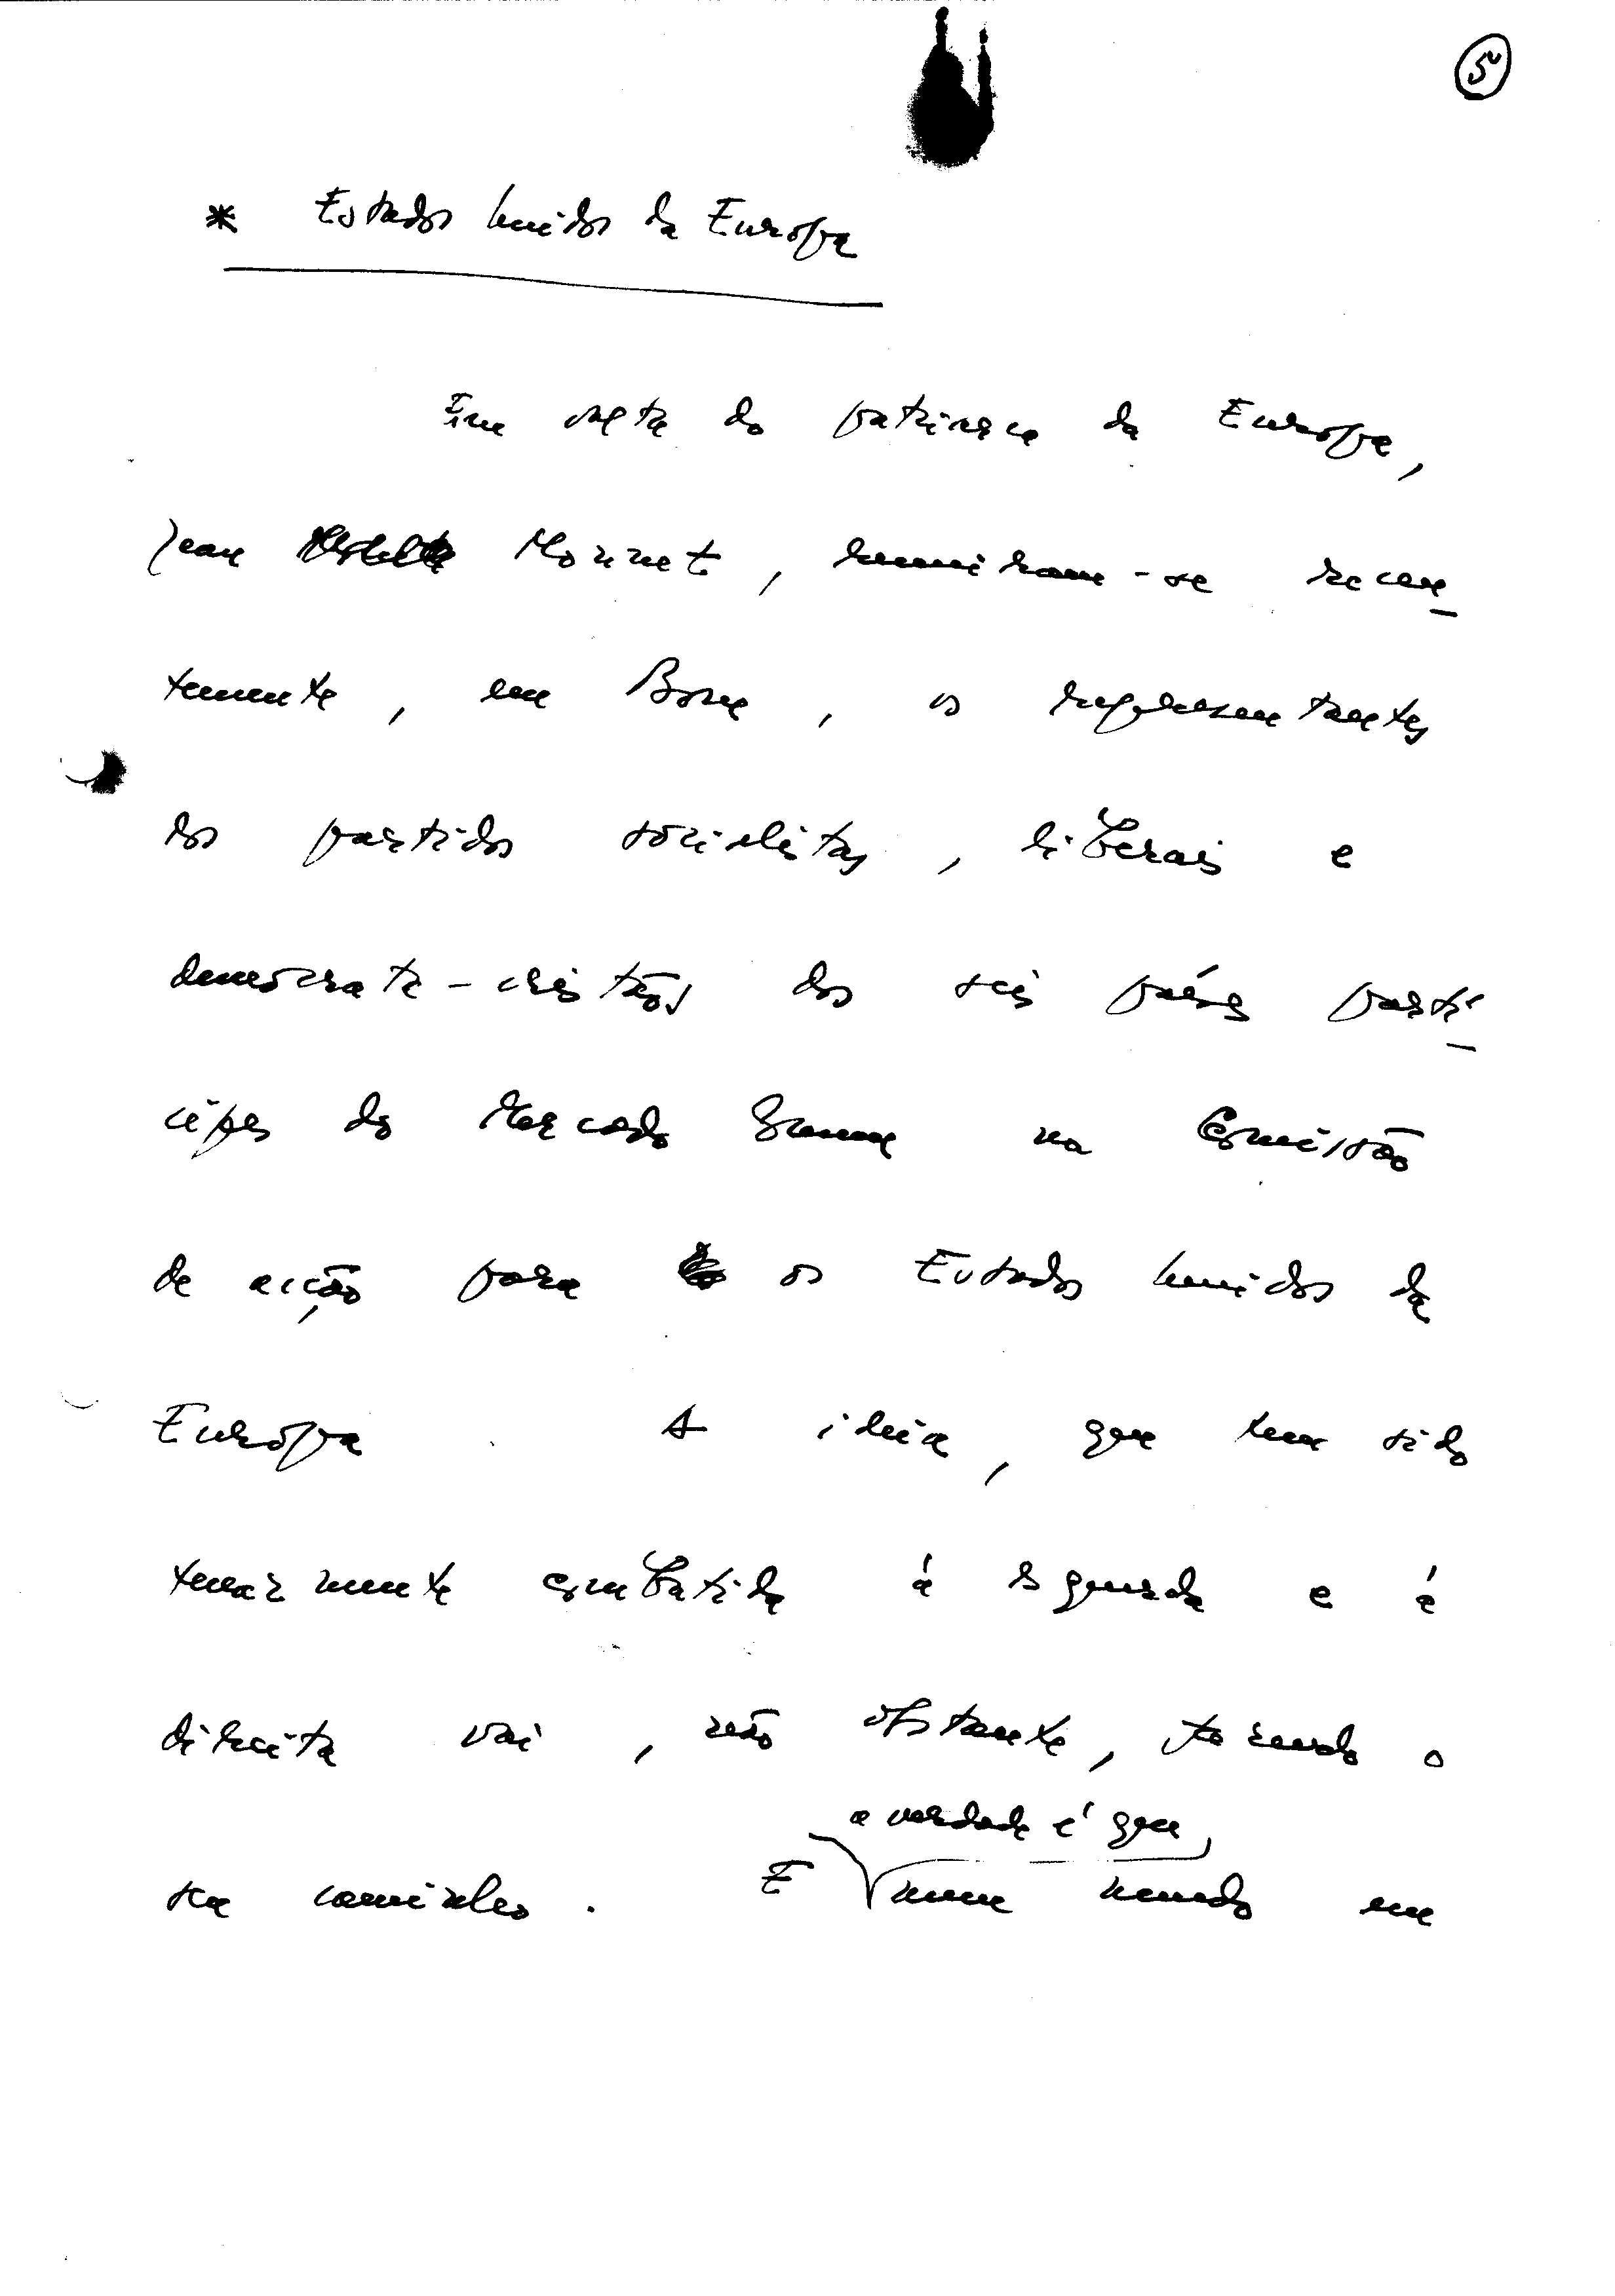 5
* Estados Unidos da Europa
Em volta do patriarca da Europa,
Jean Monnet, reuniram-se recen-
temente, em Bona, os representantes
dos partidos socialistas, liberais e
democrata-cristãos dos seis países parti-
cipes do Mercado Comum na Comissão
de acção para os Estados Unidos da
Europa. A ideia, que tem sido
tenazmente combatida à esquerda e à
direita vai, não obstante, fazendo o
seu caminho. E
a verdade é que,
num mundo em